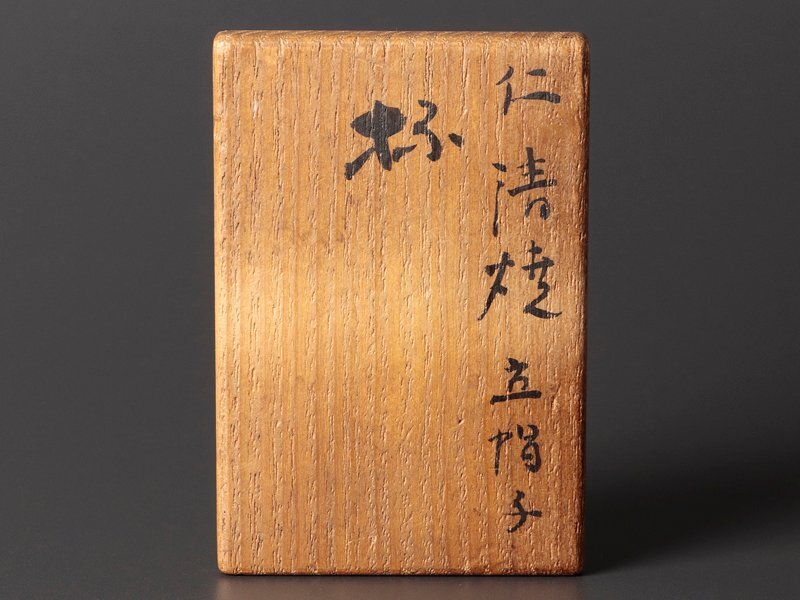 仁清焼立帽子
杯